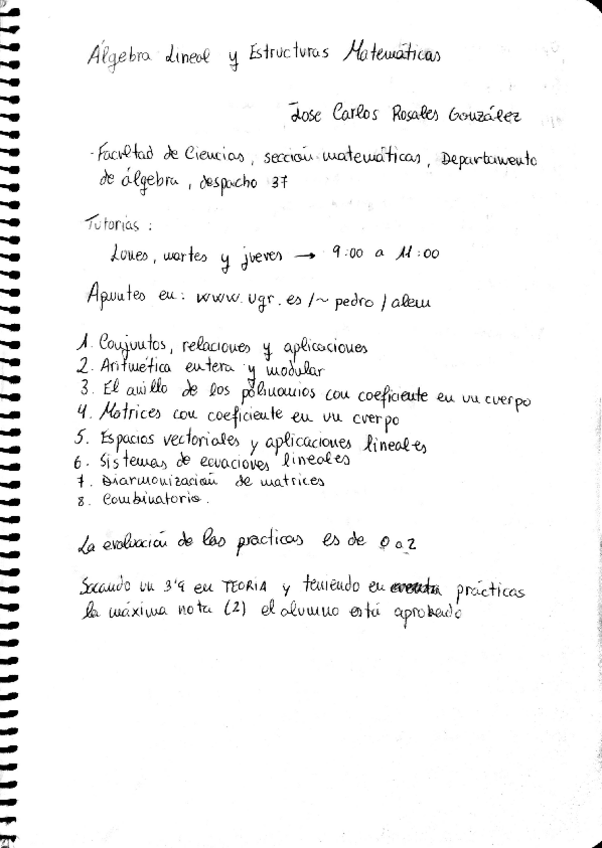 Álgebra Lineal y Estructuras Matemáticas
Jose Carlos Rosales González
- Facultad de Ciencias, sección matemáticas, Departamento
de álgebra, despacho 37
Tutorias :
Lunes, martes y jueves → 9:00 a 11:00
Apuntes en: www.ugr.es/~pedro/alem
1. Conjuntos, relaciones y aplicaciones
2. Aritmética entera y modular
3. El anillo de los polinomios con coeficiente en un cuerpo
4. Matrices con coeficiente en un cuerpo
5. Espacios vectoriales y aplicaciones lineales
6. Sistemas de ecuaciones lineales
7. Diarmonización de matrices
8. Combinatoria.
La evaluación de las practicas es de 0 a 2
Sacando un 3'9 en TEORIA y teniendo en prácticas
la máxima nota (2) el alumno está aprobado